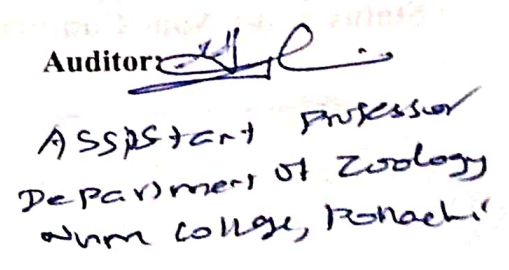 Auditor:
Assistant Professor
Department of Zoology
NGM College, Pollachi